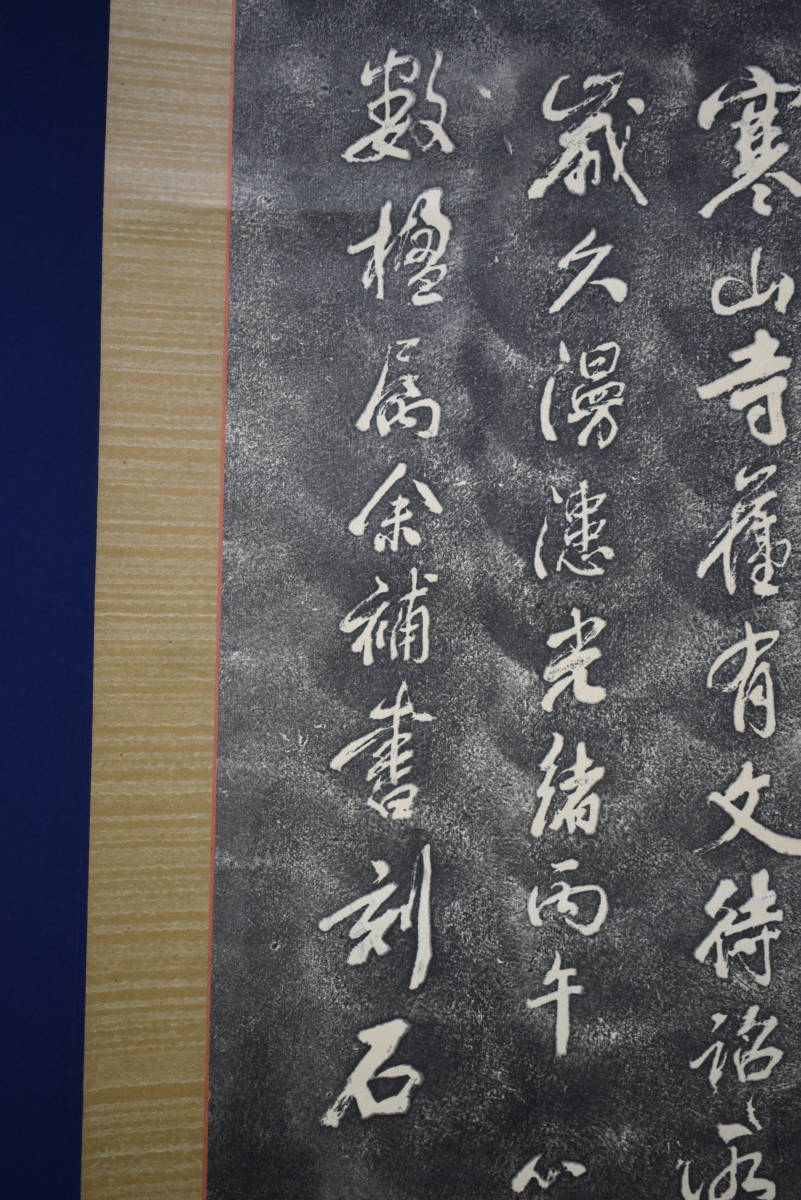 寒山寺舊有文待詔
歲久漫漶光緒丙午
數楹属余補書刻石